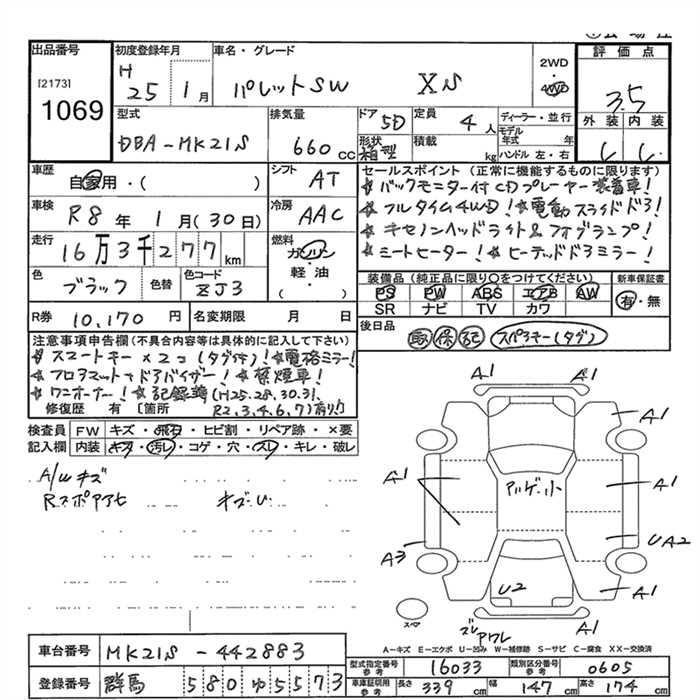 出品番号 初度登録年月 車名・グレード 2WD 評価点
[2173] H 25 1月 パレットSW XS 4WD 3.5
1069 型式 排気量 ドア 5D 定員 4人 ディーラー・並行 外装 内装
DBA-MK21S 660cc 形状 箱型 積載 kg モデル年式 年 ハンドル 左・右 C C
車歴 自家用・( ) シフト AT セールスポイント (正常に機能するものに限ります)
★バックモニター付CDプレーヤー装着車!
車検 R8年 1月(30日) 冷房 AAC ★フルタイム4WD!★電動スライドドア!
★キセノンヘッドライト&フォグランプ!
走行 16万3千277km 燃料 ガソリン・軽油 ( ) ★シートヒーター!★ヒーテッドドアミラー!
色 ブラック 色替 色コード ZJ3 装備品(純正品に限り○をつけてください) 新車保証書
PS PW ABS エアB AW 有・無
SR ナビ TV カワ
R券 10,170円 名変期限 月 日 後日品 取 保 記 スペアキー(タグ)
注意事項申告欄(不具合内容等は具体的に記入して下さい)
★スマートキー×2コ(タグ付)!★電格ミラー!
★フロアマット&ドアバイザー!★禁煙車!
★ワンオーナー!★記録簿(H25.28.30.31.
修復歴 有 [箇所 R2,3,4,6,7)有り!]
検査員 FW キズ・飛石・ヒビ割・リペア跡・×要
記入欄 内装 キズ・汚レ・コゲ・穴・スレ・キレ・破レ
A/Wキズ
Rスポアアセ キズ・U
A1 A1
A1
A1 ルーゲート小 A1
A3 UA2
U2 A1
スペア ズレ ワレ A1
A-キズ E-エクボ U-凹み W-補修跡 S-サビ C-腐食 XX-交換済
車台番号 MK21S - 442883
型式指定番号 参考 16033 類別区分番号 参考 0605
登録番号 群馬 580ゆ5573
車庫証明用 参考 長さ 339cm 幅 147cm 高さ 174cm